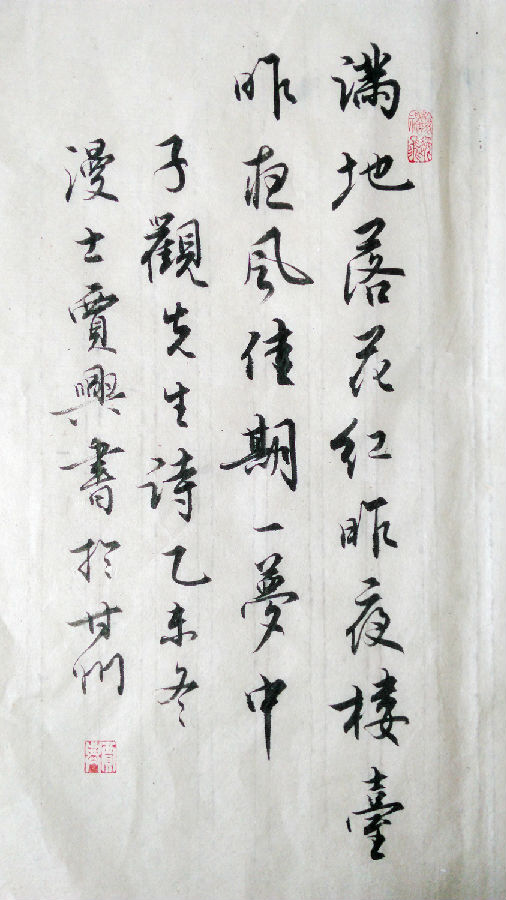 满地落花红昨夜楼臺
昨夜风佳期一夢中
子觀先生詩乙未冬
漫士賈興書於甘州